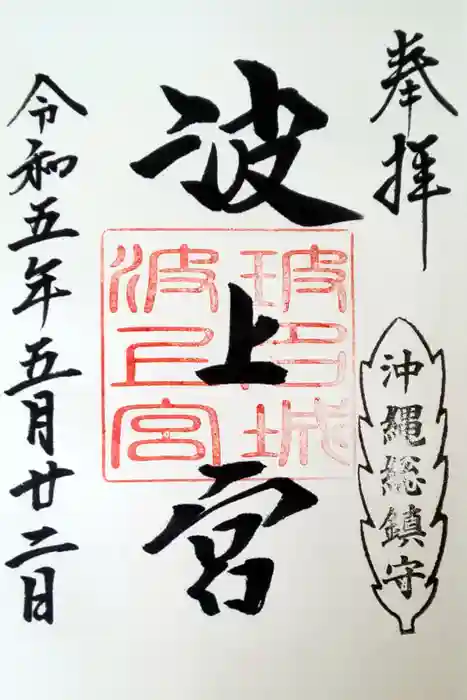 奉拝
沖縄総鎮守
波上宮
玻名城
波上宮
令和五年五月廿二日